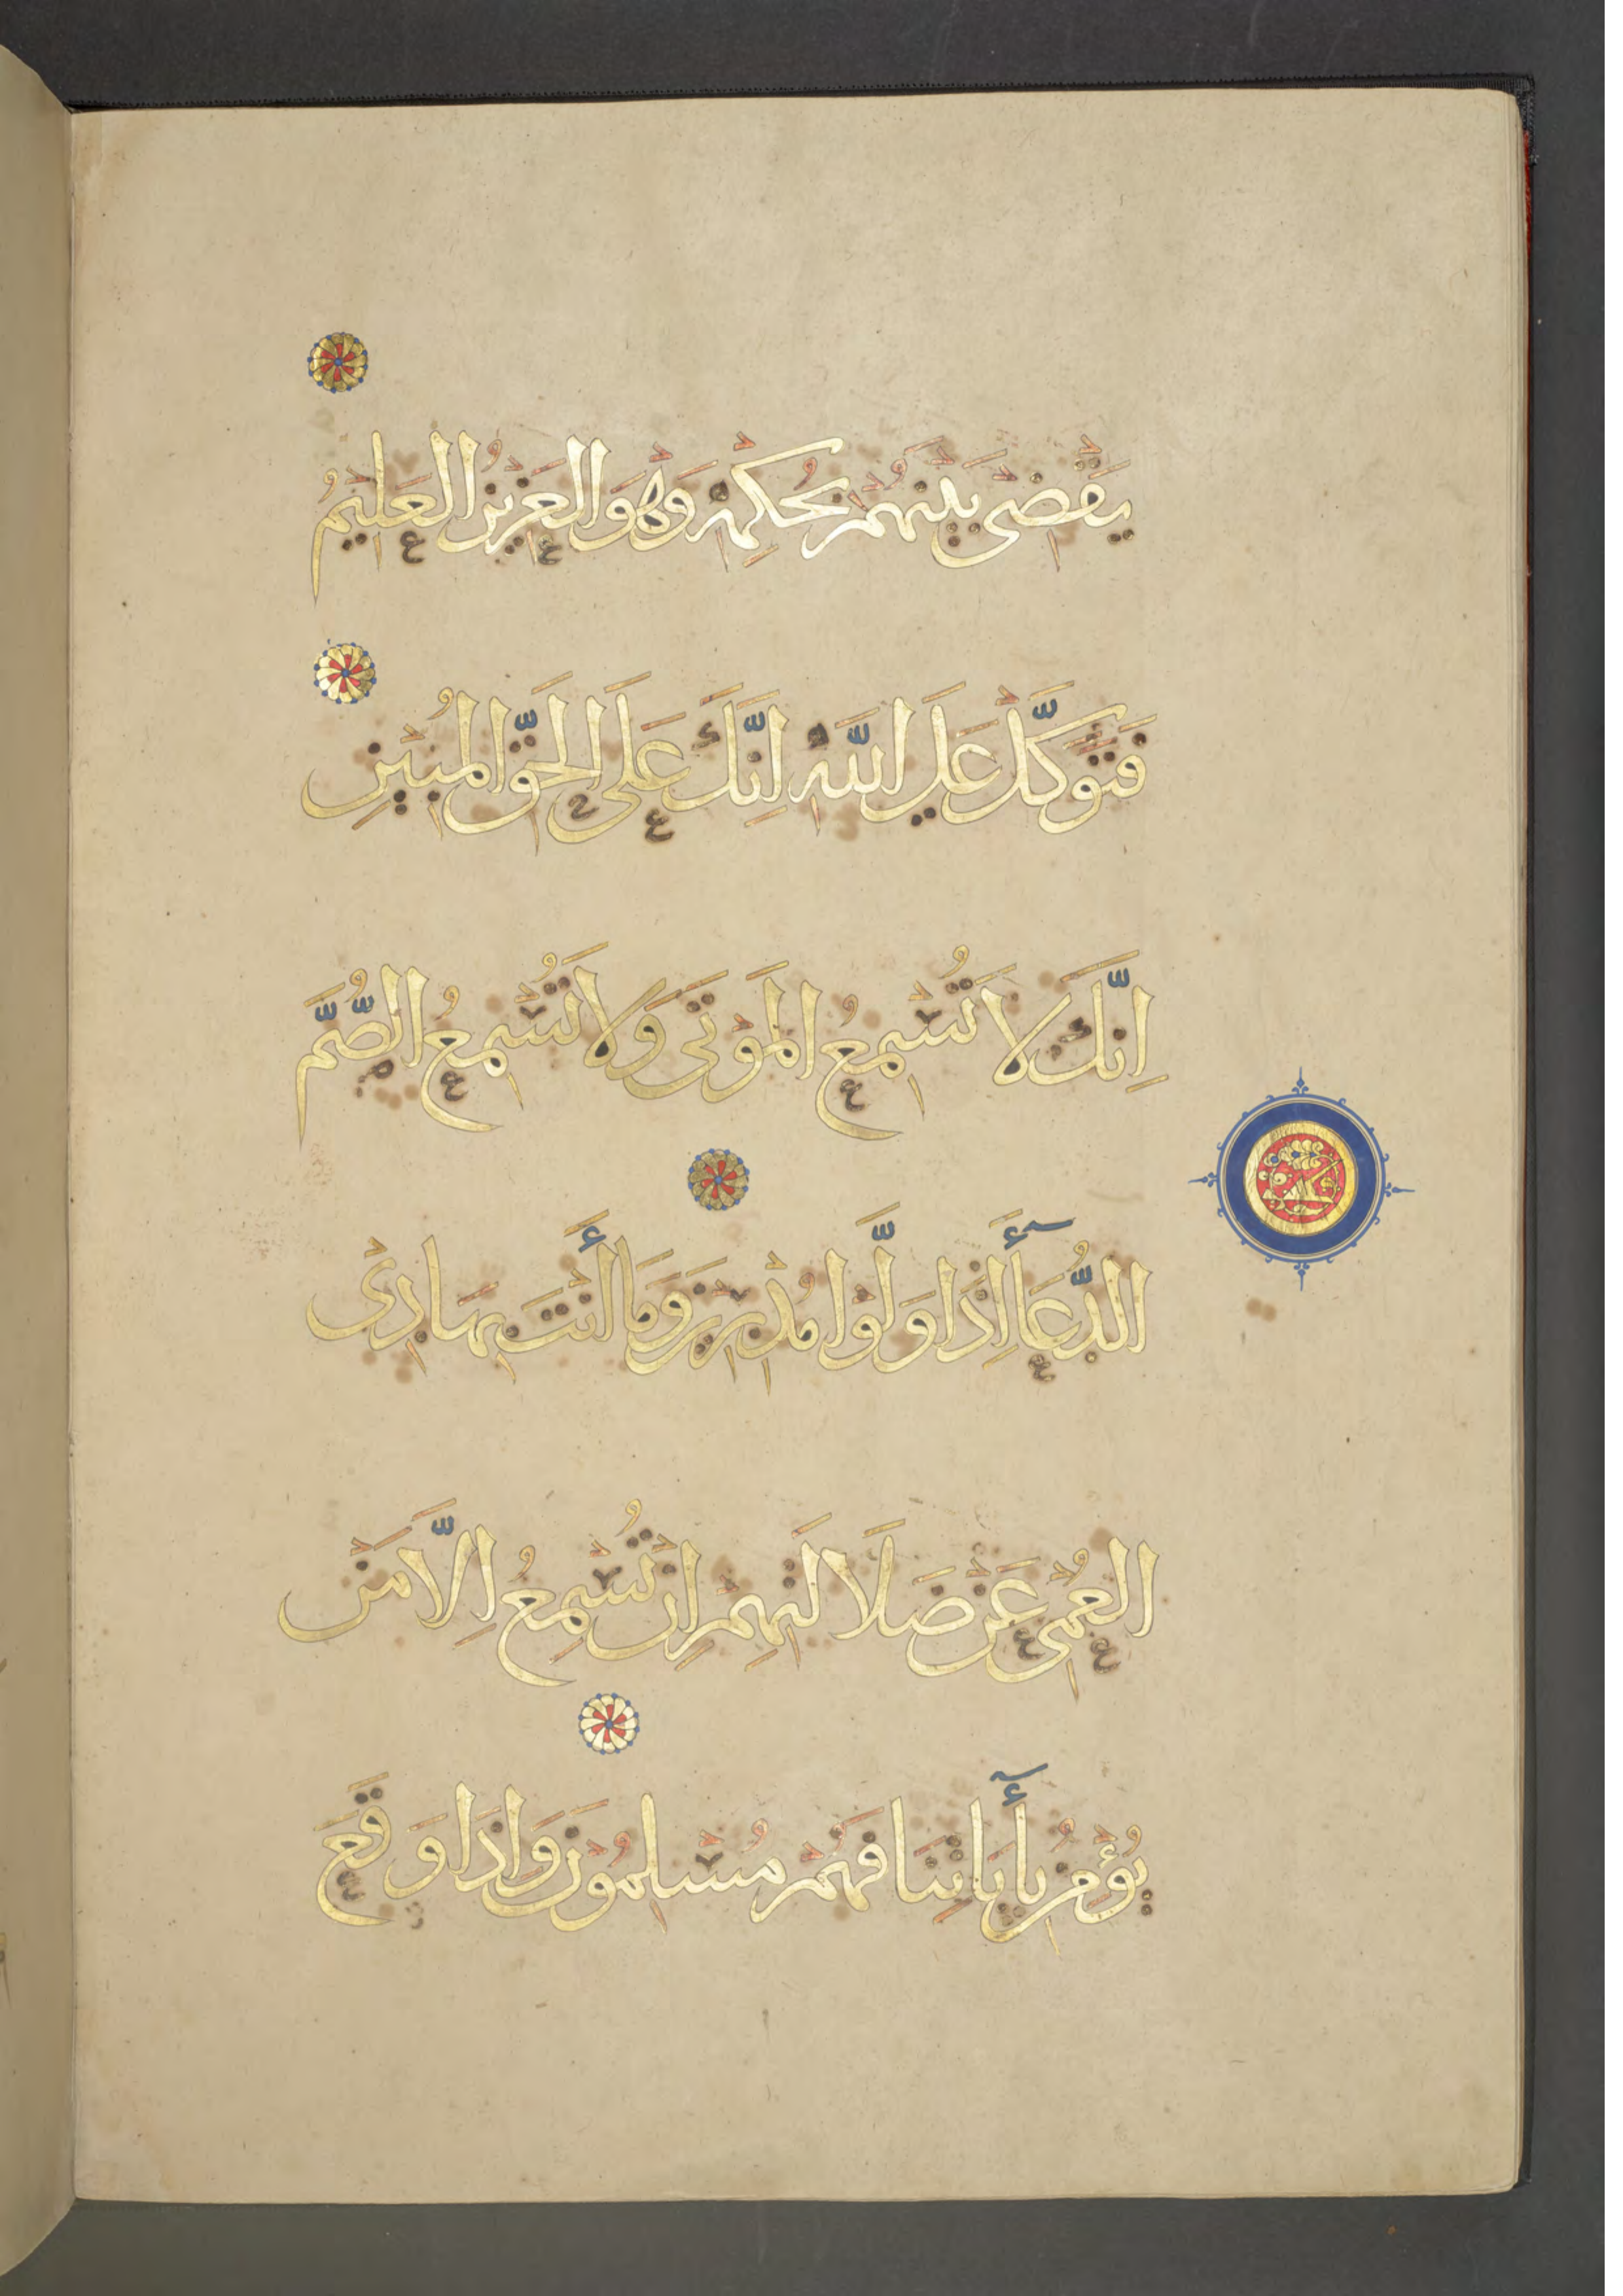 يَقْضِى بَيْنَهُمْ بِحُكْمِهِ وَهْوَ الْعَزِيزُ الْعَلِيمُ
فَتَوَكَّلْ عَلَى اللَّهِ اِنَّكَ عَلَى الْحَقِّ الْمُبِيْنِ
اِنَّكَ لَا تُسْمِعُ الْمَوْتَى وَلَا تُسْمِعُ الصُّمَّ
الدُّعَآءَ إِذَا وَلَّوْا مُدْبِرِيْنَ وَمَا أَنْتَ بِهَادِى
الْعُمْىِ عَنْ ضَلَالَتِهِمْ اِنْ تُسْمِعُ اِلَّا مَنْ
يُؤْمِنُ بِأٓيَاتِنَا فَهُمْ مُسْلِمُوْنَ وَاِذَا وَقَعَ